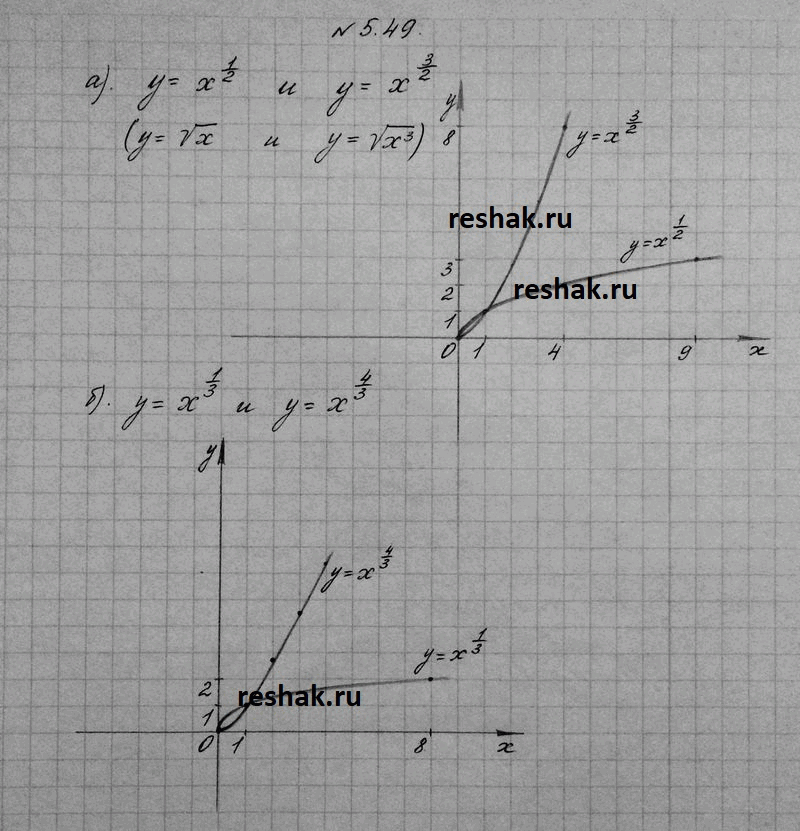 № 5.49.
а). y = x^{1/2} и y = x^{3/2}
(y = √x и y = √x³)
y
8
y = x^{3/2}
reshak.ru
y = x^{1/2}
3
reshak.ru
2
1
0 1 4 9 x
б). y = x^{1/3} и y = x^{4/3}
y
y = x^{4/3}
y = x^{1/3}
2
reshak.ru
1
0 1 8 x